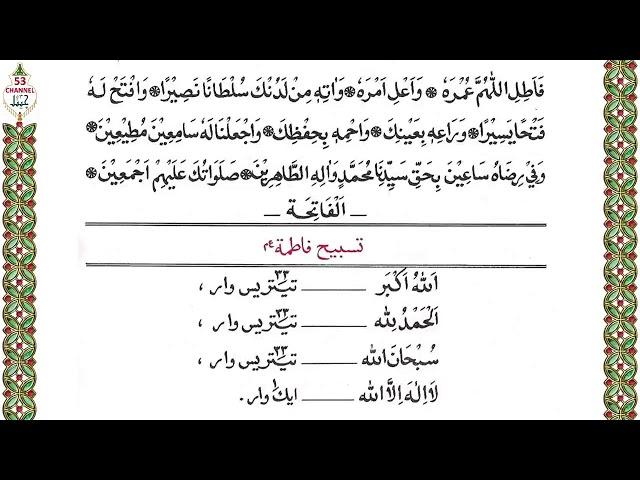 53
CHANNEL
فَاَطِلِ اللّٰهُمَّ عُمْرَهٗ ۞ وَاَعْلِ اَمْرَهٗ ۞ وَاٰتِهٖ مِنْ لَدُنْكَ سُلْطَانًا نَصِيْرًا ۞ وَافْتَحْ لَهٗ
فَتْحًا يَسِيْرًا ۞ وَرَاعِهٖ بِعَيْنِكَ ۞ وَاحْمِهٖ بِحِفْظِكَ ۞ وَاجْعَلْنَا لَهٗ سَامِعِيْنَ مُطِيْعِيْنَ ۞
وَفِيْ رِضَاهُ سَاعِيْنَ بِحَقِّ سَيِّدِنَا مُحَمَّدٍ وَاٰلِهِ الطَّاهِرِيْنَ ۞ صَلَوَاتُكَ عَلَيْهِمْ اَجْمَعِيْنَ ۞
— اَلْفَاتِحَة —
تسبيح فاطمة ع م
اَللهُ اَكْبَر ــــــــ تيتريس ٣٣ وار ،
اَلْحَمْدُ لِلّٰه ــــــــ تيتريس ٣٣ وار ،
سُبْحَانَ الله ــــــــ تيتريس ٣٣ وار ،
لَا اِلٰهَ اِلَّا الله ــــــــ ايك ١ وار .